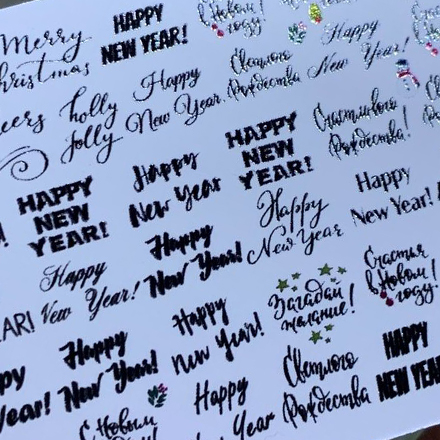 Merry
Christmas
HAPPY
NEW YEAR!
с Новым
году!
Happy
New Year!
Светлого
Рождества
Happy
New Year.
holly
Jolly
HAPPY
NEW
YEAR!
Счастливого
Рождества!
Happy
New Year
HAPPY
NEW
YEAR!
Happy
New Year!
Happy
New Year
Happy
New Year!
Happy
New Year!
Счастья
в Новом
году!
Загадай
желание!
Happy
New Year!
Happy
New Year!
HAPPY
NEW YEAR
Светлого
Рождества
Happy
Year
с Новым